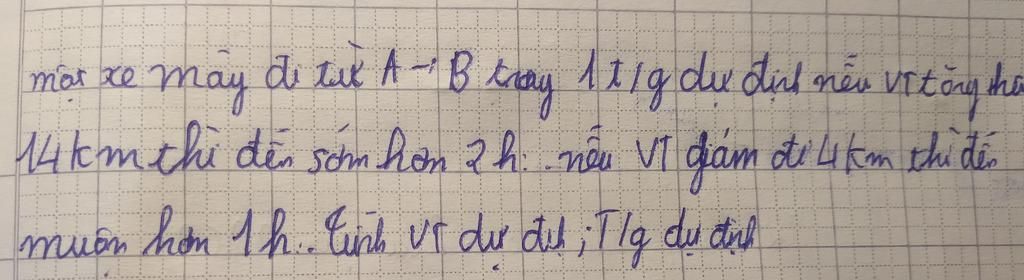 một xe máy đi từ A → B trong 1 t/g dự định nếu VT tăng thê
14 km thì đến sớm hơn 2h. nếu VT giảm đi 4 km thì đến
muộn hơn 1h.. tính VT dự định ; T/g dự định